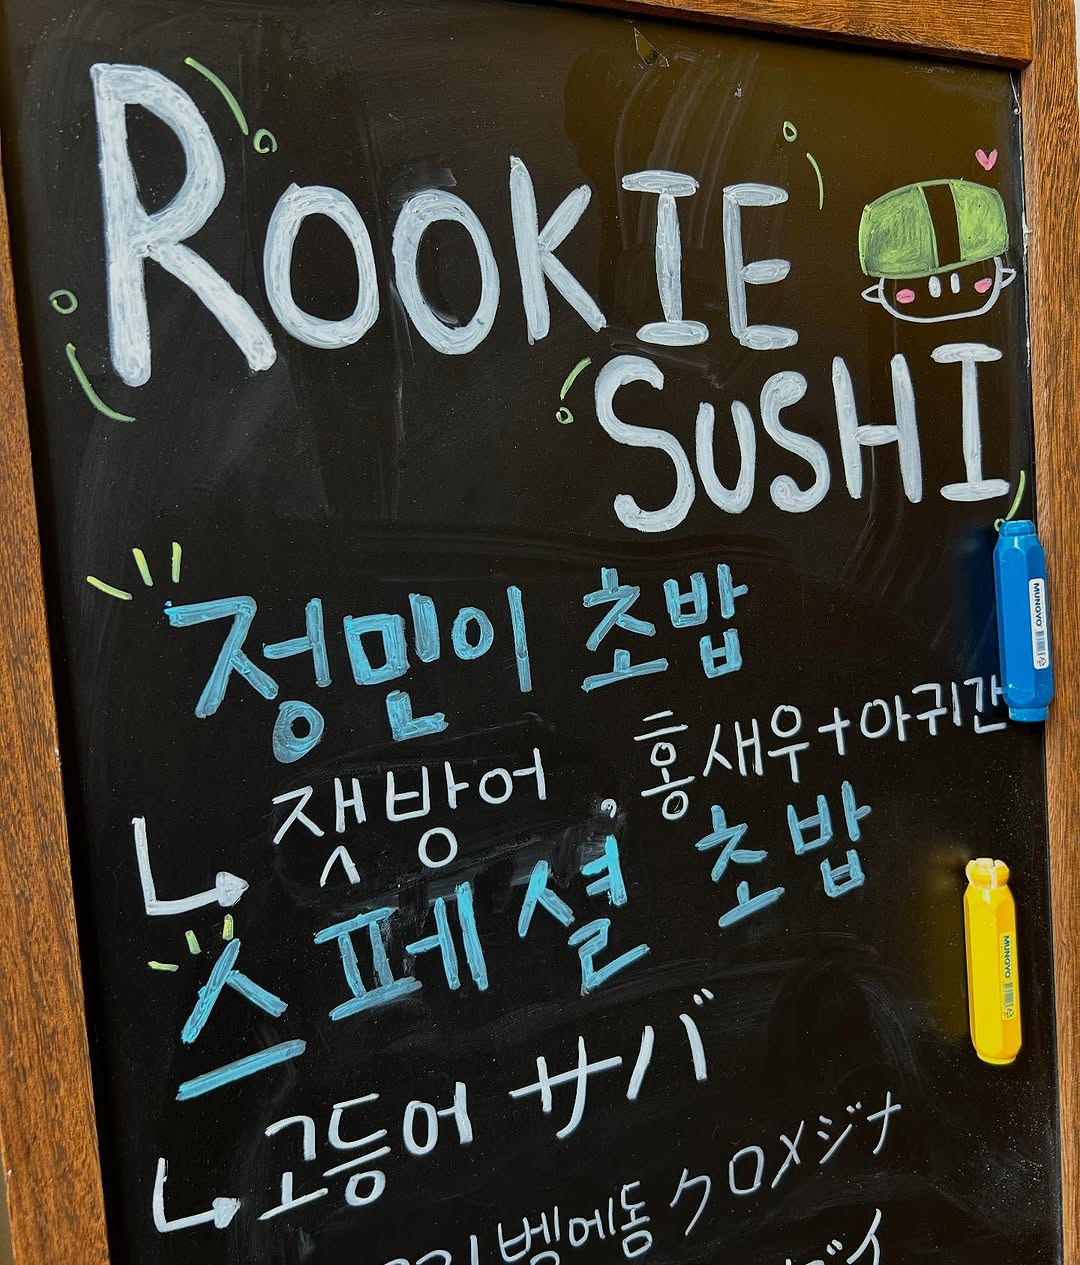 ROOKIE
SUSHI
정민이 초밥
홍새우+아귀간
잿방어
스페셜 초밥
고등어 サバ
벵에돔 クロメジナ
MUNGYO
MUNGYO